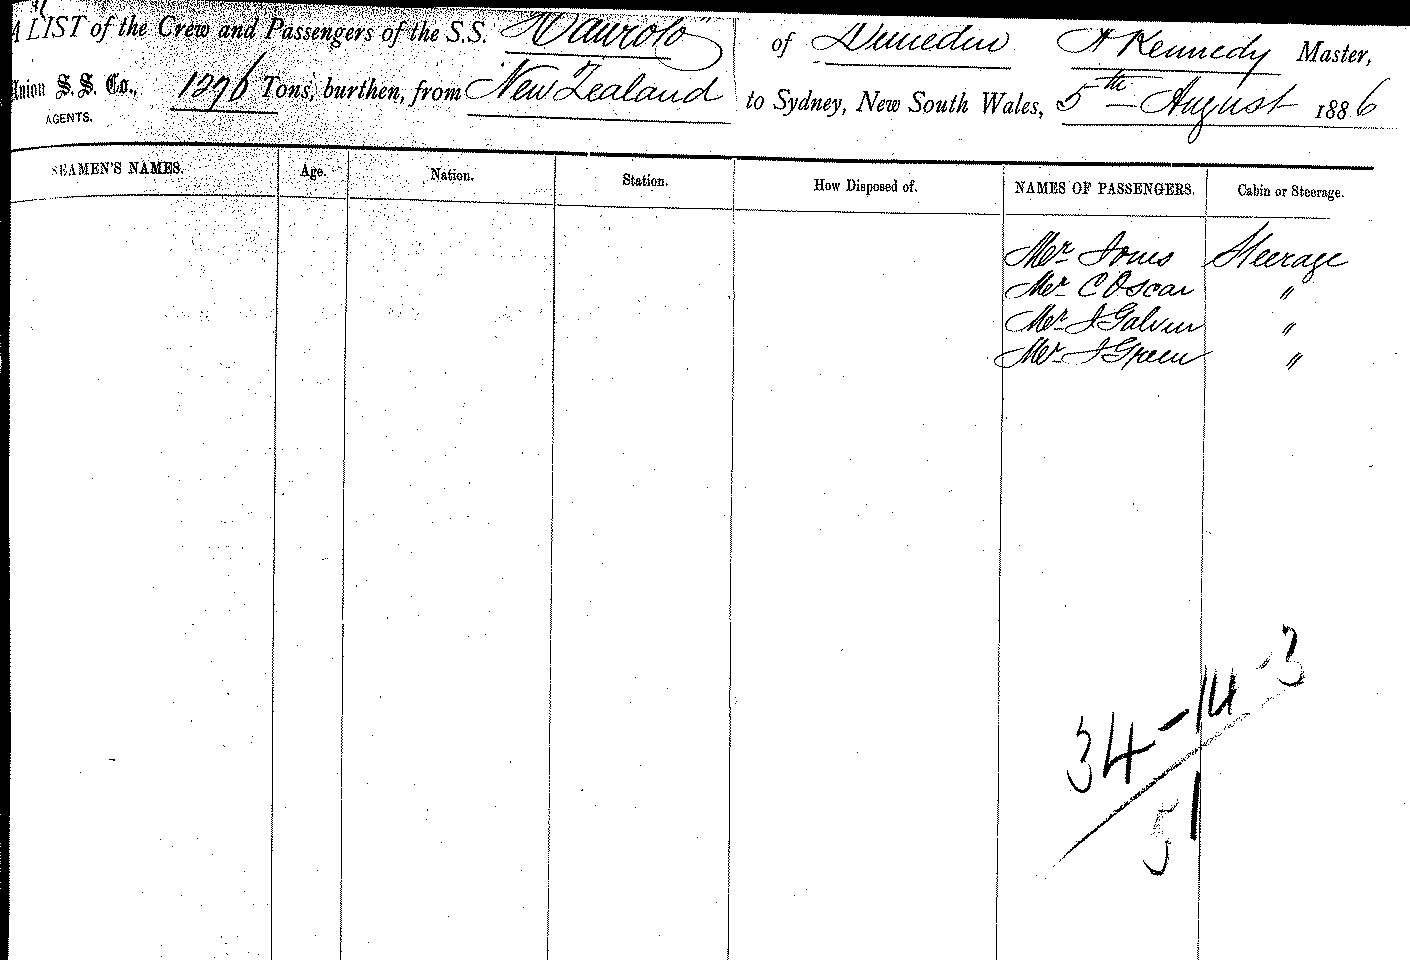 A LIST of the Crew and Passengers of the S.S. of Dunedin A Kennedy Master,
Union S. S. Co., 1276 Tons, burthen, from New Zealand to Sydney, New South Wales, 5th August 1886
AGENTS.
SEAMEN'S NAMES. Age. Nation. Station. How Disposed of. NAMES OF PASSENGERS. Cabin or Steerage.
Mr Steerage
Mr C Oscar "
Mr J Galvin "
Mr J Green "
34 - 14 - 3
51